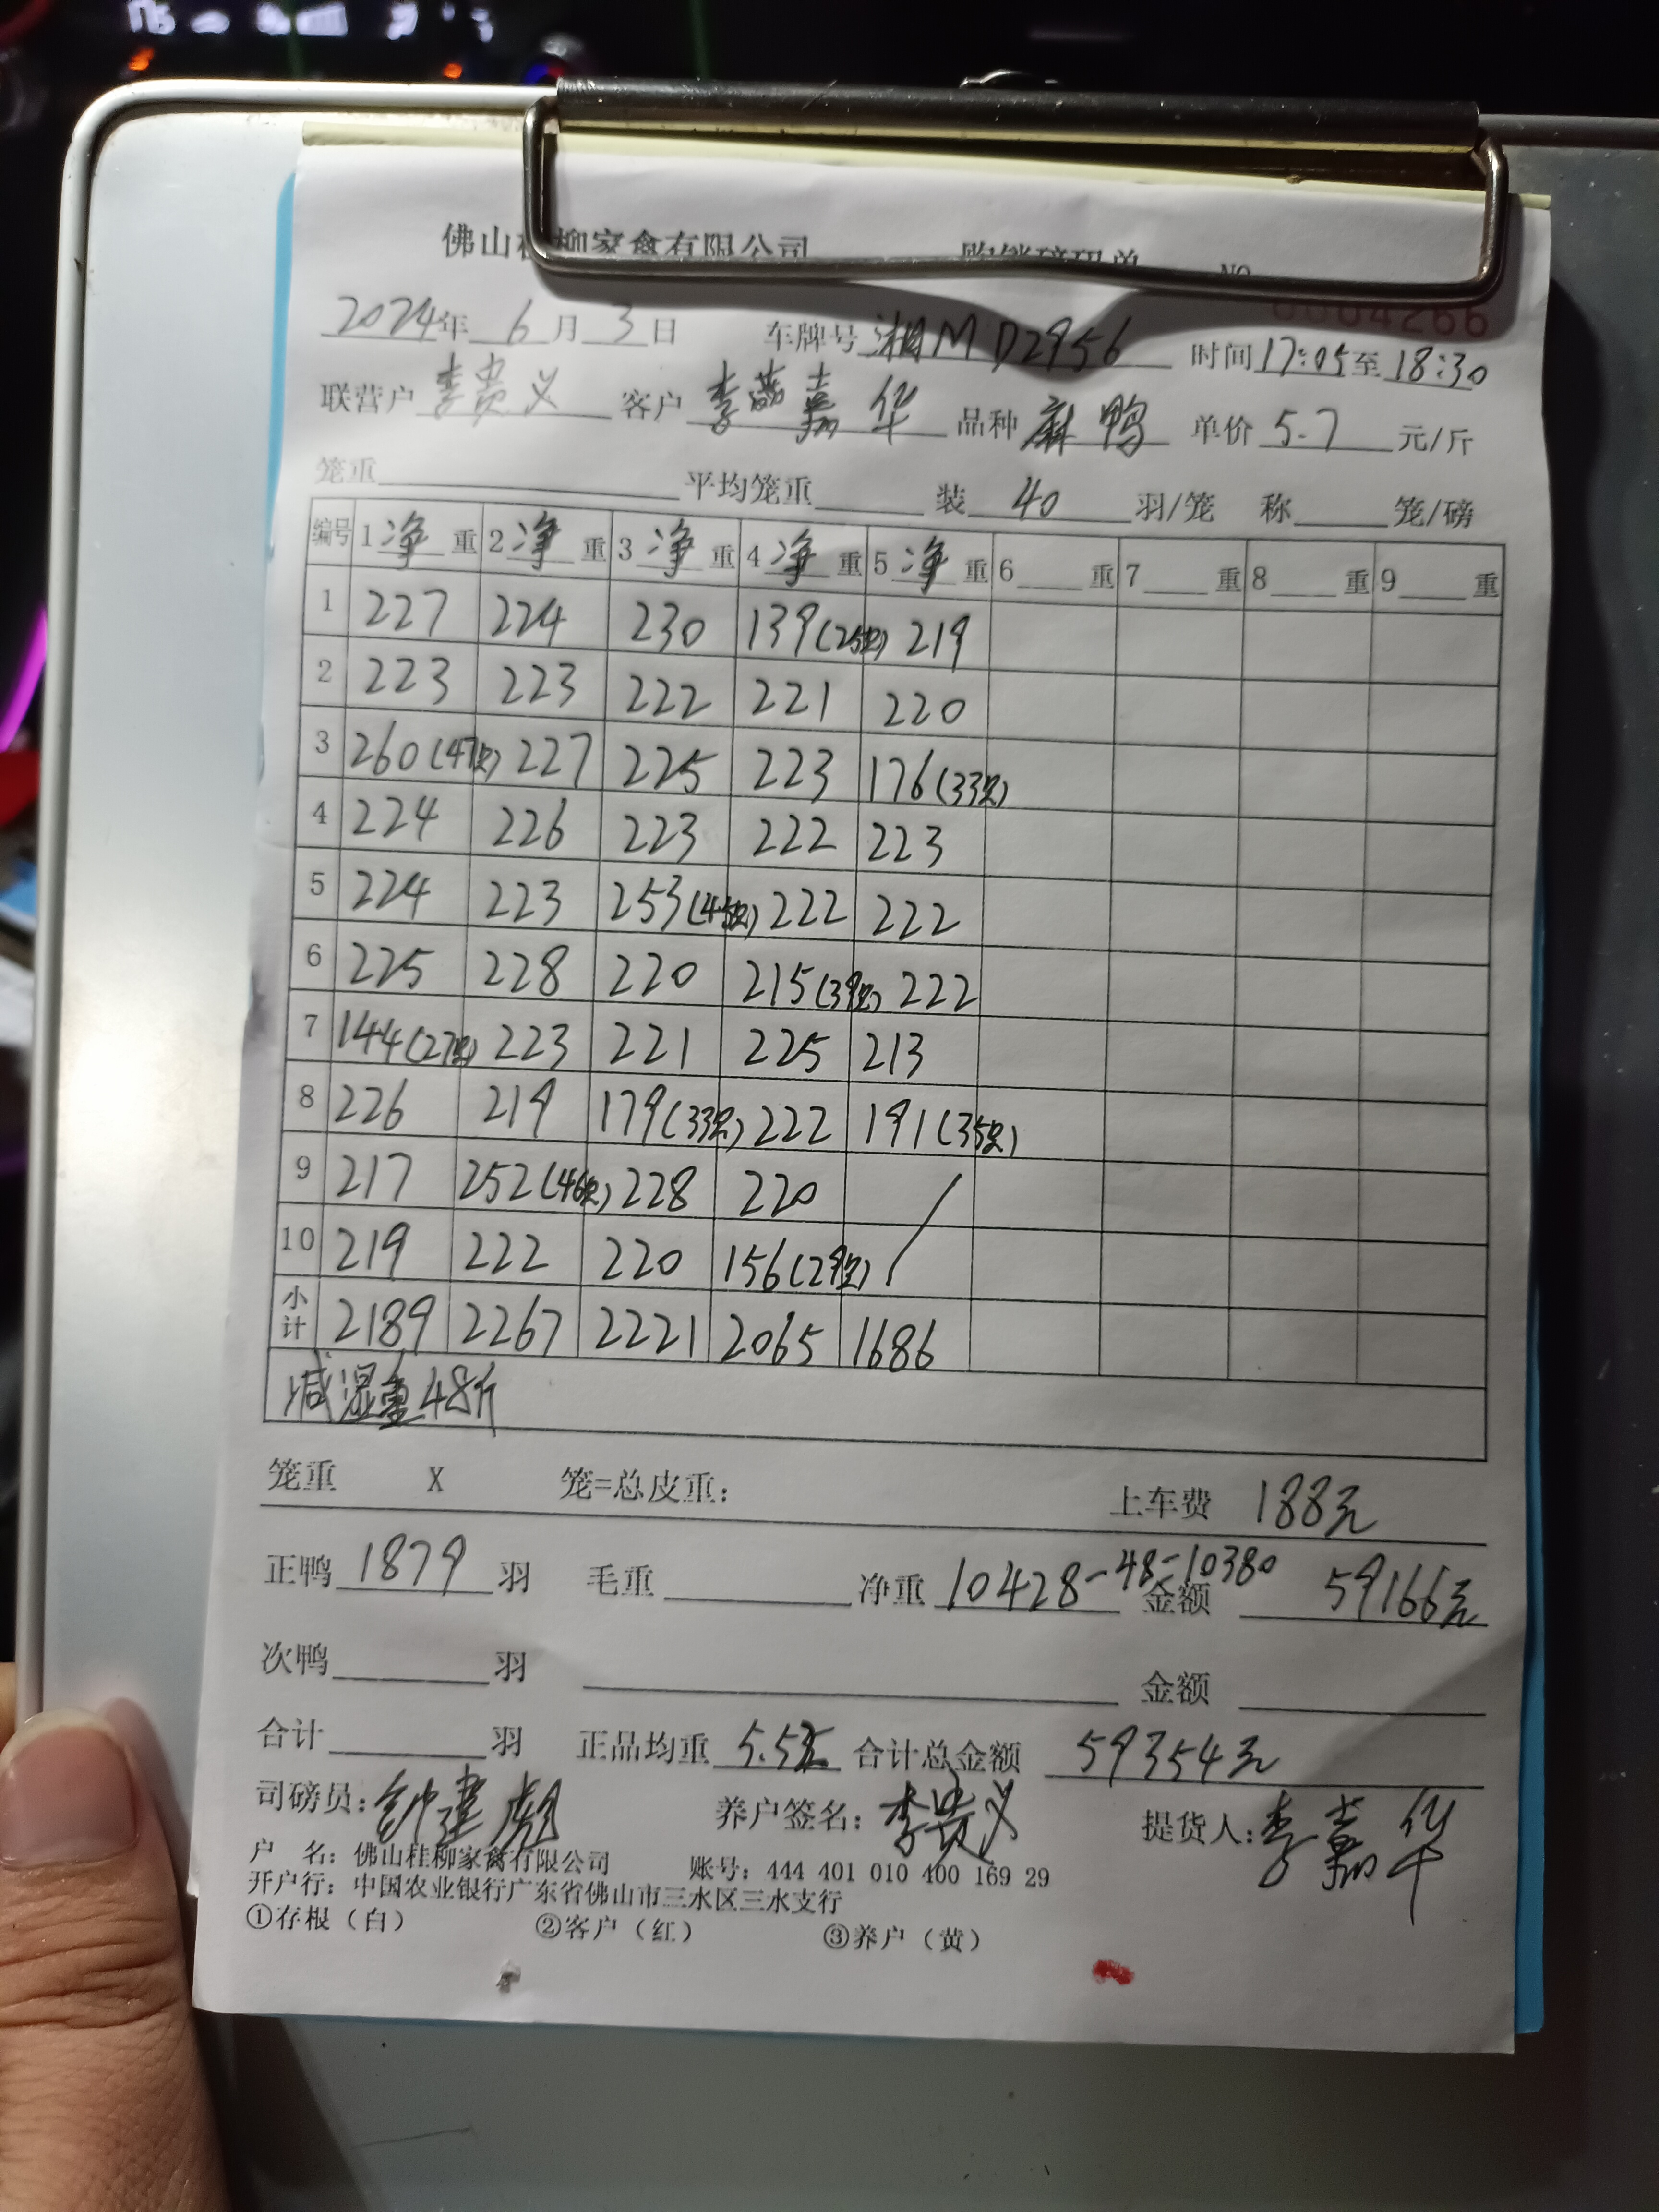 佛山桂柳家禽有限公司 购销磅码单 NO
0004266
2024年 6月 3日 车牌号 湘M D2956 时间 17:05至 18:30
联营户 李贵义 客户 李嘉华 品种 麻鸭 单价 5.7 元/斤
笼重 平均笼重 装 40 羽/笼 称 笼/磅
编号 1 净 重 2 净 重 3 净 重 4 净 重 5 净 重 6 重 7 重 8 重 9 重
1 227 224 230 139(25只) 219
2 223 223 222 221 220
3 260(47只) 227 225 223 176(33只)
4 224 226 223 222 223
5 224 223 253(45只) 222 222
6 225 228 220 215(39只) 222
7 144(27只) 223 221 225 213
8 226 219 179(33只) 222 191(35只)
9 217 252(46只) 228 220
10 219 222 220 156(29只)
小计 2189 2267 2221 2065 1686
减湿重48斤
笼重 X 笼=总皮重: 上车费 188元
正鸭 1879 羽 毛重 净重 10428-48=10380 金额 59166元
次鸭 羽 金额
合计 羽 正品均重 5.52 合计总金额 59354元
司磅员: 钟建彪 养户签名: 李贵义 提货人: 李嘉华
户 名: 佛山桂柳家禽有限公司 账号: 444 401 010 400 169 29
开户行: 中国农业银行广东省佛山市三水区三水支行
①存根（白） ②客户（红） ③养户（黄）